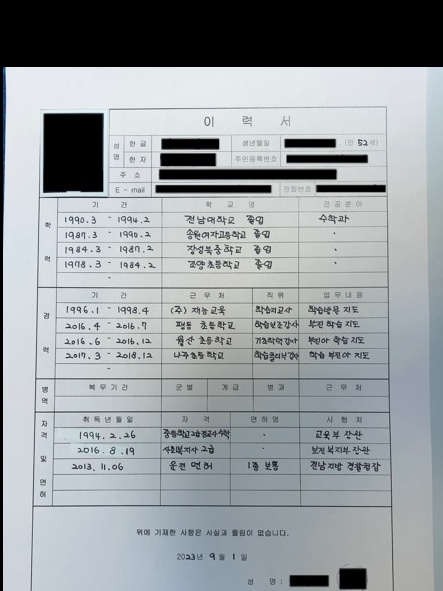 이 력 서
성명 한 글 생년월일 (만 52세)
한 자 주민등록번호
주 소
E - mail 전화번호
학력 기 간 학 교 명 전 공 분 야
1990.3 ~ 1994.2 전남대학교 졸업 수학과
1987.3 ~ 1990.2 송원여자고등학교 졸업 .
1984.3 ~ 1987.2 장성북중학교 졸업 .
1978.3 ~ 1984.2 초등학교 졸업 .
~
경력 기 간 근 무 처 직 위 업 무 내 용
1996.1 ~ 1998.4 (주) 재능교육 학습지교사 학습방문 지도
2016.4 ~ 2016.7 평동 초등학교 학습보조강사 부진 학습 지도
2016.6 ~ 2016.12 월산 초등학교 기초학력강사 부진아 학습 지도
2017.3 ~ 2018.12 나주초등학교 학습 부진아 지도
~
병역 복 무 기 간 군 별 계 급 병 과 근 무 처
자격 및 면허 취 득 년 월 일 자 격 면 허 명 시 행 처
1994.2.26 중등학교2급정교사수학 . 교육부 장관
2016.8.19 사회복지사 2급 . 보건복지부 장관
2013.11.06 운전면허 1종 보통 전남지방 경찰청장
위에 기재한 사항은 사실과 틀림이 없습니다.
2023년 9월 1일
성 명 :